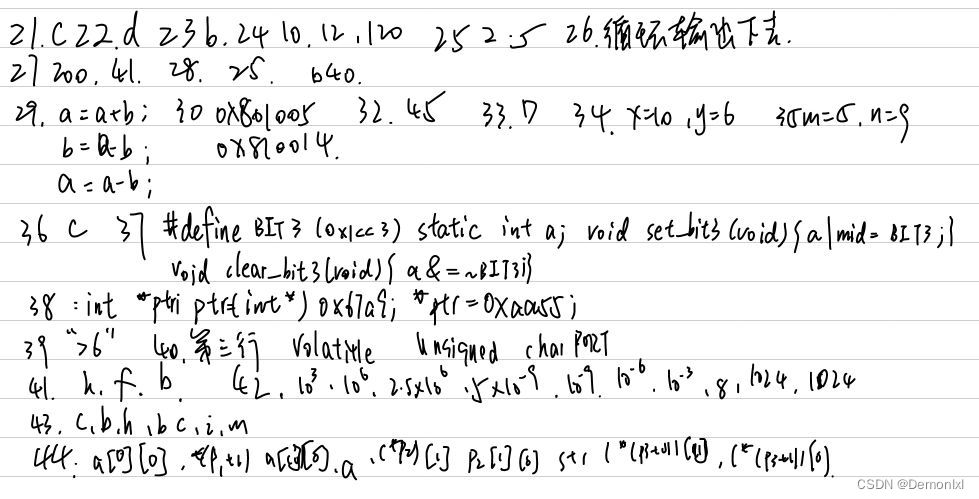 21.C 22.d 23 b. 24 10.12,120 25 2.5 26.循环输出下去.
27 200. 41. 28. 25. 640.
29. a=a+b; 30 0x801005 32. 45 33. 7 34. x=10,y=6 35 m=5.n=9
b=a-b; 0x810014.
a=a-b;
36 C 37 #define BIT3 (0x1<<3) static int a; void set_bit3(void){a|mid=BIT3;}
void clear_bit3(void){a&=~BIT3;}
38:int *ptr; ptr=(int*)0x67a9; *ptr=0xaa55;
39 ">6" 40.第三行 Volatile Unsigned char PORT
41. h.f.b. 42. 10³.10⁶.2.5x10⁶.5x10⁻⁹.10⁻⁹.10⁻⁶.10⁻³.8,1024,1024
43. c,b,h,b c,i,m
44. a[0][0], *(p1+1) a[0]. a. (*p2)[1] p2[1][0] str
CSDN @Demonlxl